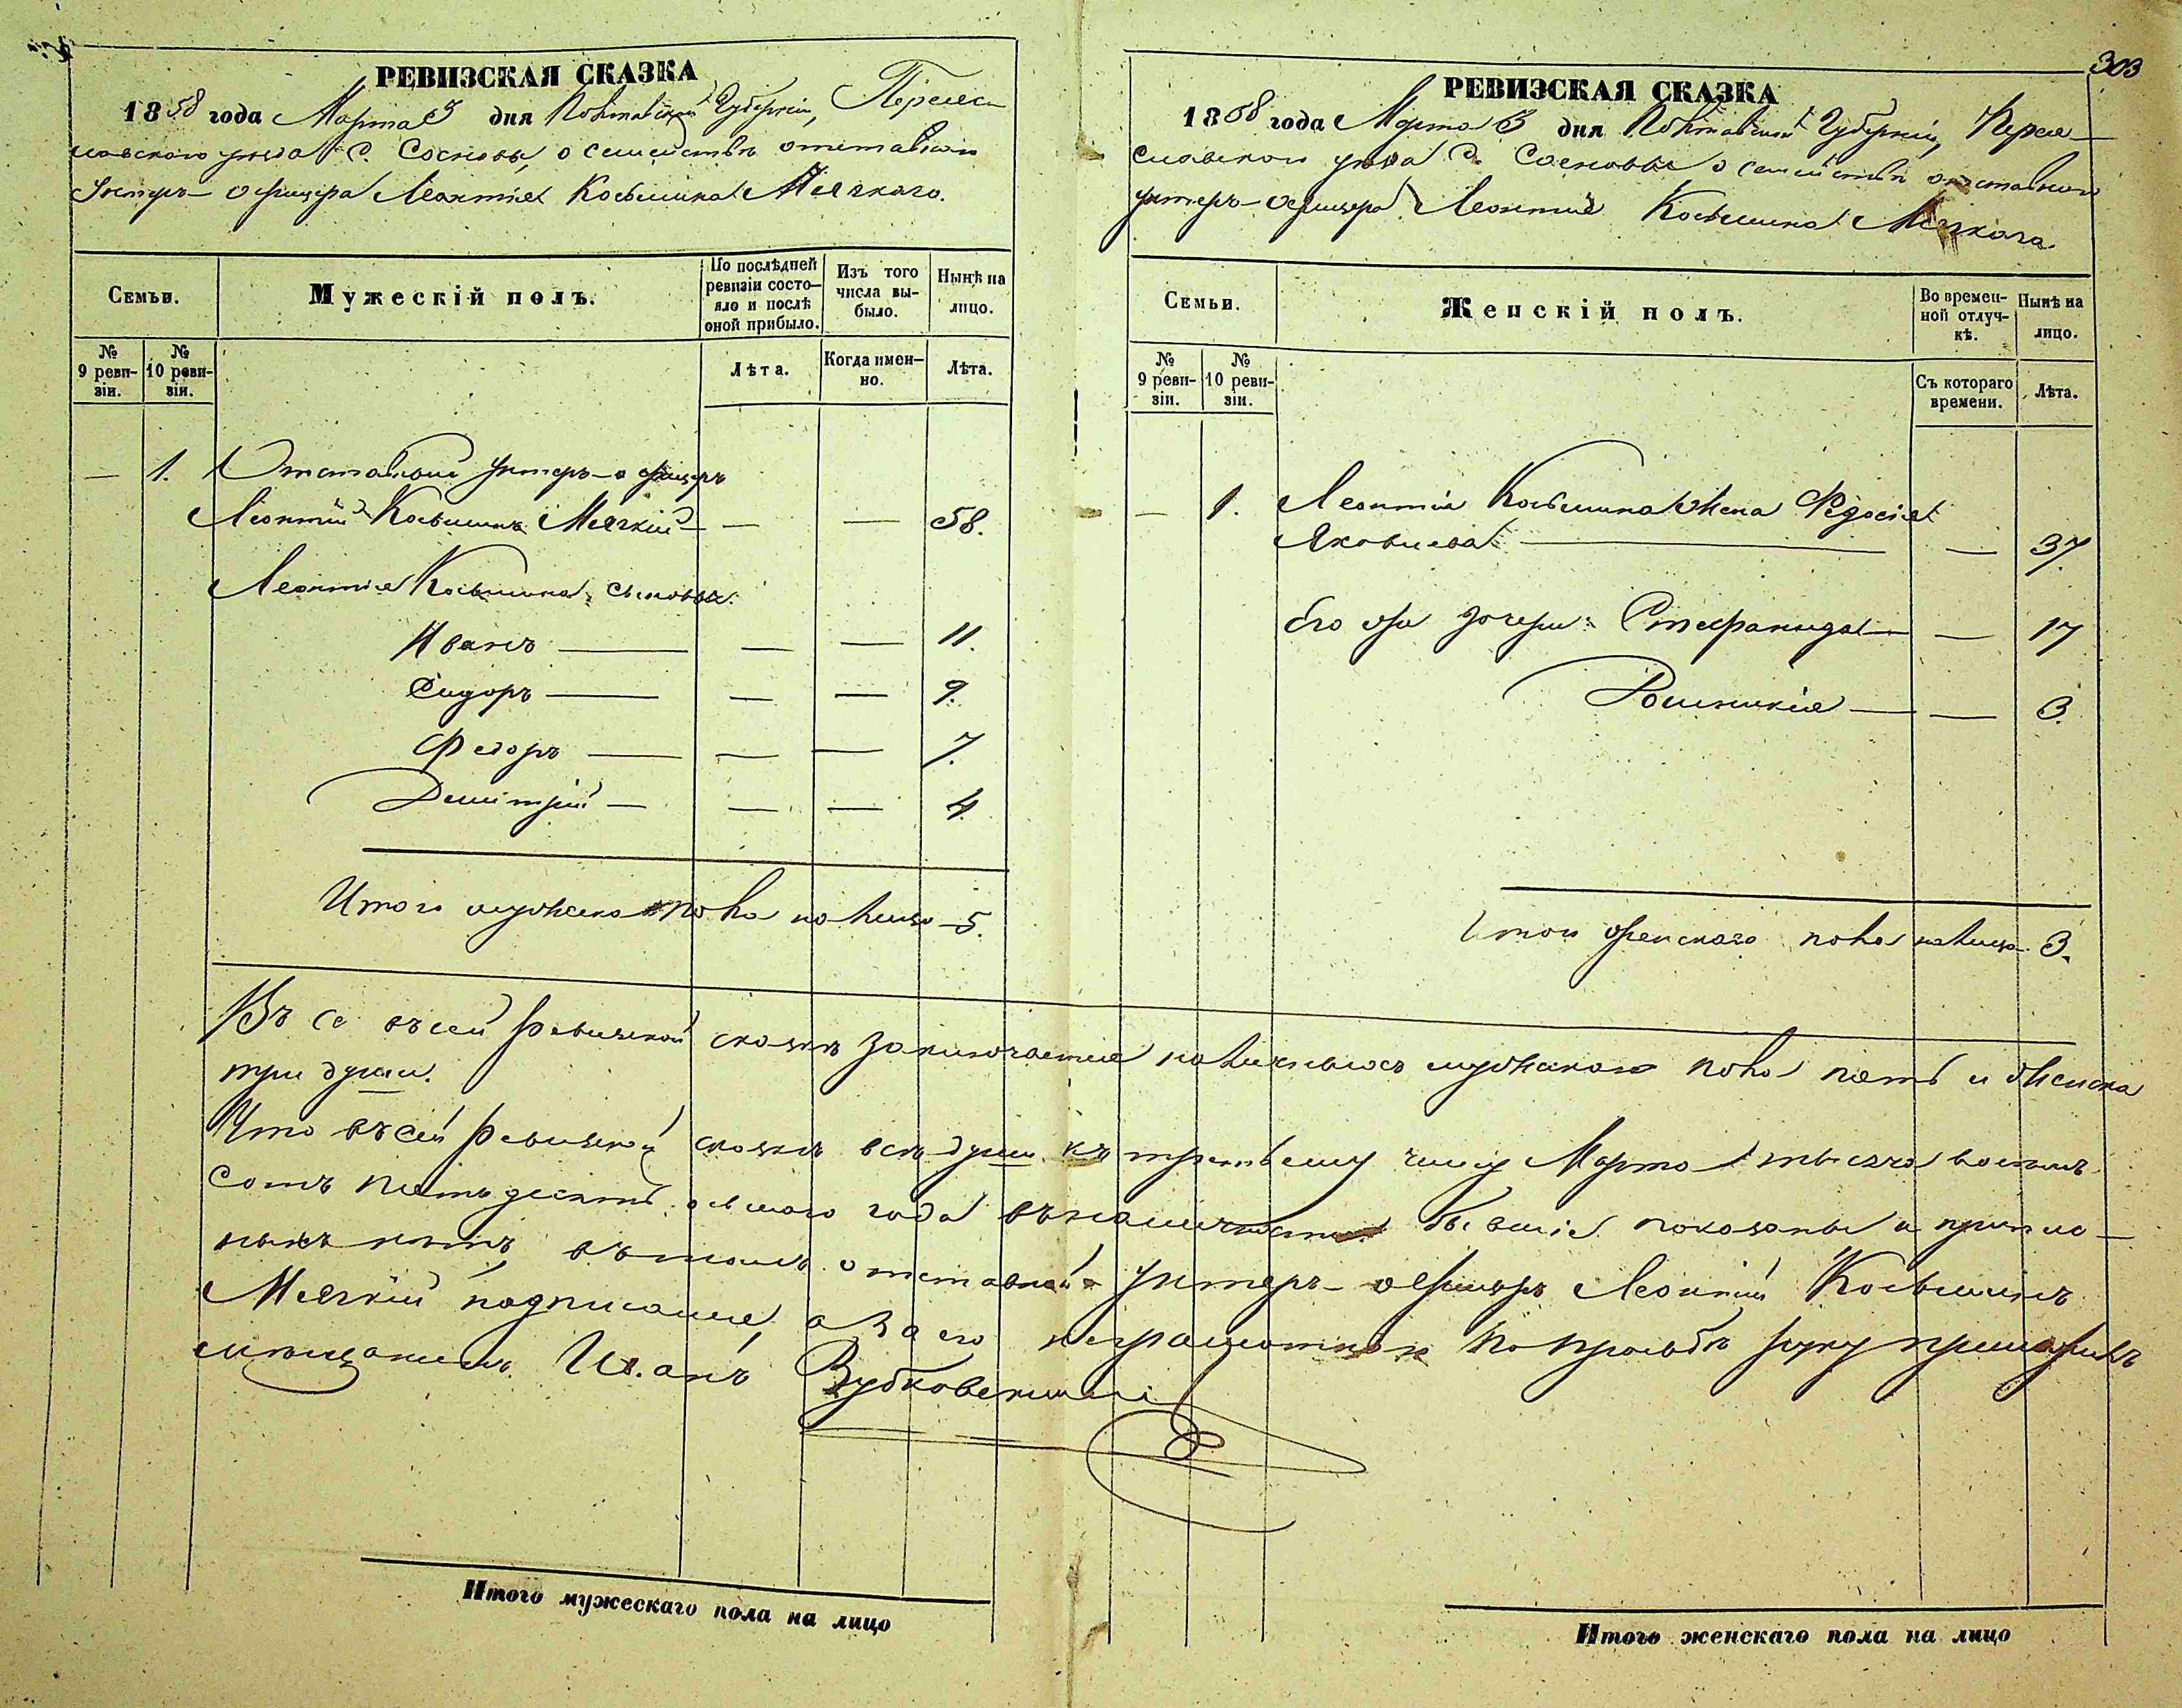 303
РЕВИЗСКАЯ СКАЗКА
1858 года Марта 3 дня Полтавской Губерніи, Переяс-
лавского уезда С. Сосновы, о семействѣ отставнаго
Унтеръ-офицера Леонтія Косьмина Мягкаго.
Семьи.
Мужескій полъ.
По послѣдней ревизіи состо-яло и послѣ оной прибыло.
Изъ того числа вы-было.
Нынѣ на лицо.
№ 9 реви-зіи.
№ 10 реви-зіи.
Лѣта.
Когда имен-но.
Лѣта.
— 1. Отставный унтеръ-офицеръ
Леонтій Косьминъ Мягкій — — — 58.
Леонтія Косьмина сыновья:
Иванъ — — — 11.
Сидоръ — — — 9.
Федоръ — — — 7.
Димитрій — — — 4.
Итого мужеска пола на лицо — 5.
РЕВИЗСКАЯ СКАЗКА
1858 года Марта 3 дня Полтавской Губерніи, Перея-
славскаго уезда С. Сосновы о семействѣ отставнаго
унтеръ-офицера Леонтія Косьмина Мягкаго.
Семьи.
Женскій полъ.
Во времен-ной отлуч-кѣ.
Нынѣ на лицо.
№ 9 реви-зіи.
№ 10 реви-зіи.
Съ котораго времени.
Лѣта.
— 1. Леонтія Косьмина жена Федосія
Яковлева — — 37.
Его же дочери: Стефанида — — 17
— — 3.
Итого женскаго пола на лицо 3.
сей ревизской сказкѣ заключается наличныхъ мужеска пола пять и женска
три души.
Что въ сей ревизской сказкѣ всѣ души къ третьему числу Марта тысяча восемь
сотъ пятьдесятъ осьмаго года въ наличности бывшіе показаны и
нѣтъ, въ томъ отставной унтеръ-офицеръ Леонтій Косьминъ
Мягкій подписался, а за его неграмотныхъ по прозьбѣ руку приложилъ
мѣщанинъ Иванъ
Итого мужескаго пола на лицо
Итого женскаго пола на лицо